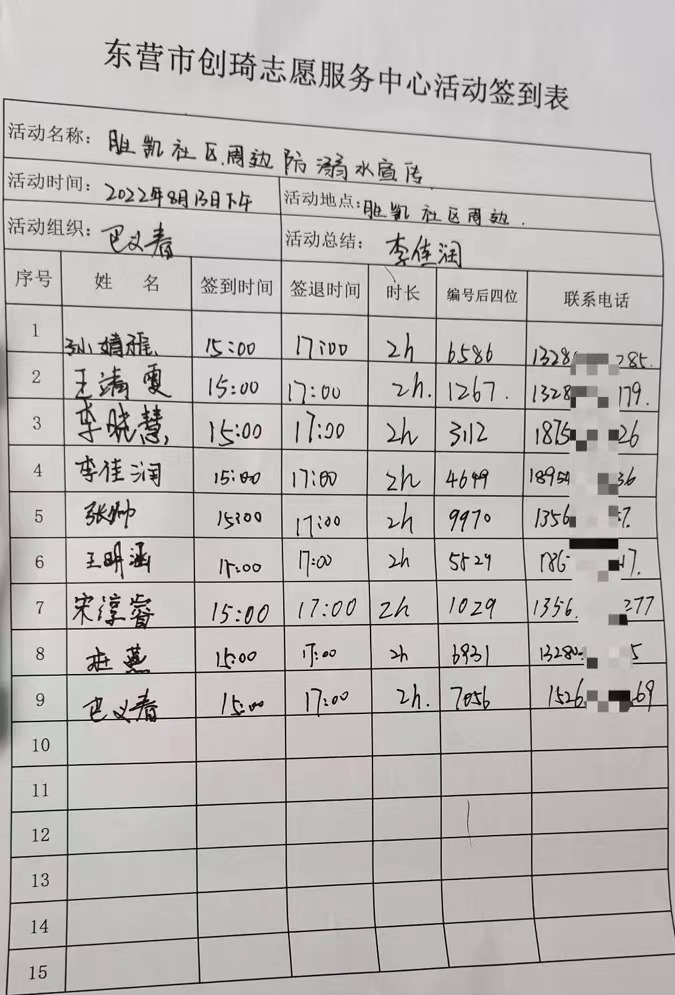 东营市创琦志愿服务中心活动签到表
活动名称: 胜凯社区.周边防溺水宣传.
活动时间: 2022年8月13日下午 活动地点: 胜凯社区周边.
活动组织: 巴义春 活动总结: 李佳润
序号 姓 名 签到时间 签退时间 时长 编号后四位 联系电话
1 孙婧雅 15:00 17:00 2h 6586 1328 285.
2 王靖雯 15:00 17:00 2h. 1267. 1328 179.
3 李晓慧, 15:00 17:00 2h 3112 1875 26
4 李佳润 15:00 17:00 2h 4649 18954 36
5 张帅 15:00 17:00 2h 9970 1356 7.
6 王明涵 15:00 17:00 2h 5829 186 17.
7 宋淳睿 15:00 17:00 2h 1029 1356. 277
8 杜燕 15:00 17:00 2h 6931 13280 5
9 巴义春 15:00 17:00 2h. 7056 1526 69
10
11
12
13
14
15